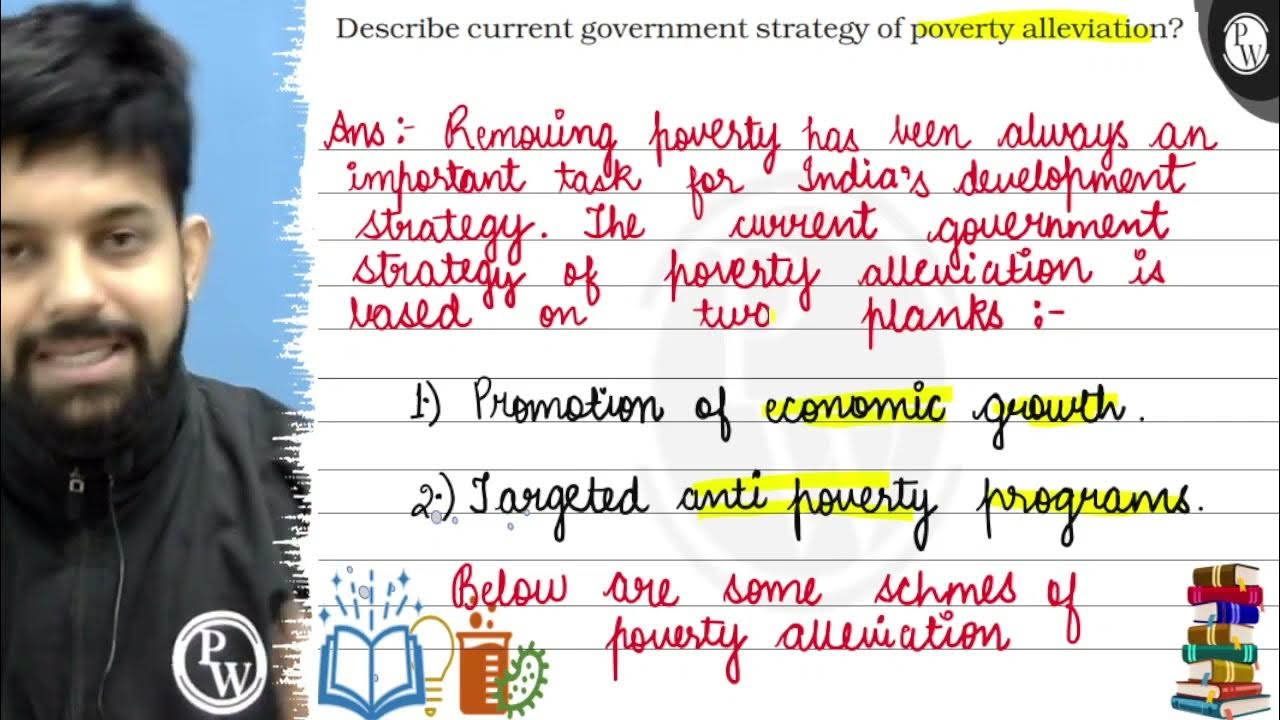 Describe current government strategy of poverty alleviation?
PW
Ans :- Removing poverty has been always an
important task for India's development
strategy. The current government
strategy of poverty alleviation is
based on two planks :-
1.) Promotion of economic growth.
2.) Targeted anti poverty programs.
Below are some schmes of
poverty alleviation
PW